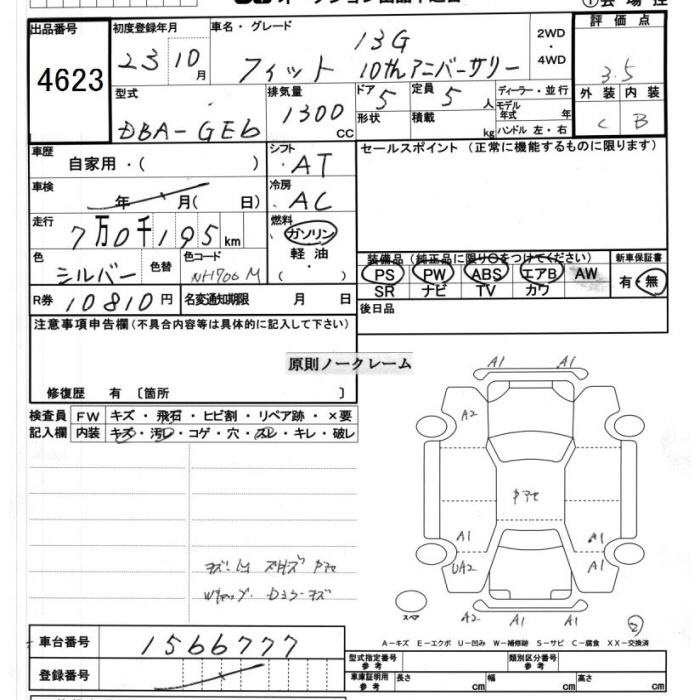 出品番号
4623
初度登録年月
23 10月
車名・グレード
13G
フィット 10thアニバーサリー
2WD
・
4WD
評価点
3.5
型式
DBA-GE6
排気量
1300
CC
ドア
5
定員
5人
形状
積載
kg
ディーラー・並行
モデル
年式 年
ハンドル 左・右
外装 内装
C B
車歴
自家用・( )
シフト
AT
セールスポイント(正常に機能するものに限ります)
車検
年 月( 日)
冷房
AC
走行
7万0千195km
燃料
ガソリン
軽油
・
( )
色
シルバー
色替
色コード
NH700M
装備品(純正品に限り○をつけてください)
PS PW ABS エアB AW
SR ナビ TV カワ
新車保証書
有・無
R券 10810円
名変通知期限 月 日
後日品
注意事項申告欄(不具合内容等は具体的に記入して下さい)
原則ノークレーム
修復歴 有 〔箇所 〕
検査員
記入欄
FW キズ・飛石・ヒビ割・リペア跡・×要
内装 キズ・汚レ・コゲ・穴・スレ・キレ・破レ
A1 A1
A2
A1 A1
UA2 A1
スペア
A2 A1 A1
2
A-キズ E-エクボ U-凹み W-補修跡 S-サビ C-腐食 XX-交換済
車台番号
1566777
登録番号
型式指定番号
参考
類別区分番号
参考
車庫証明用
参考
長さ cm
幅 cm
高さ cm